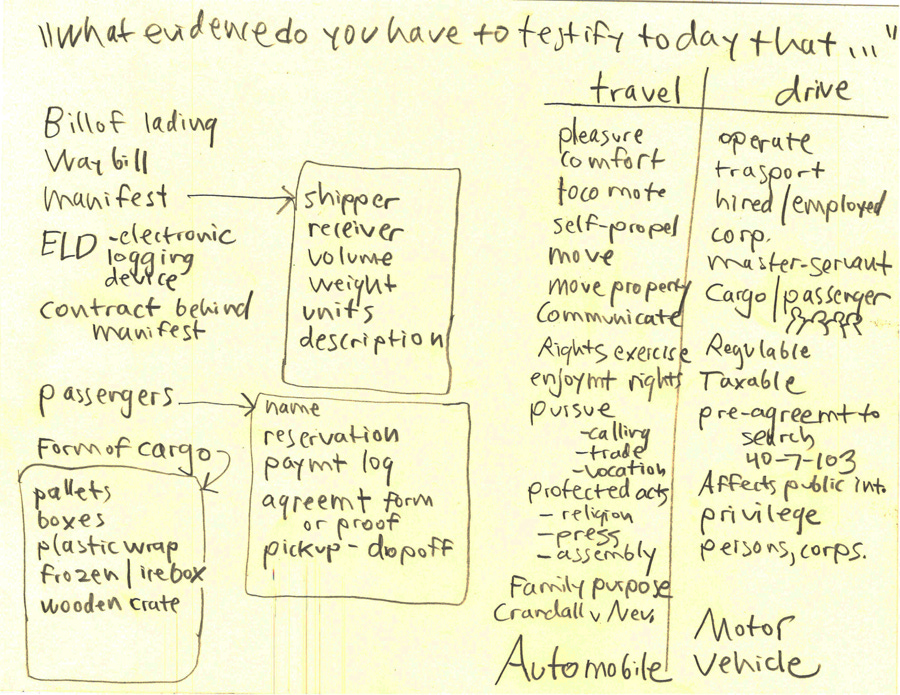 "What evidence do you have to testify today that ..."
Bill of lading
Way bill
manifest
ELD -electronic
logging
device
contract behind
manifest
shipper
receiver
volume
weight
units
description
passergers
name
reservation
paymt log
agreemt form
or proof
pickup - dropoff
Form of cargo
pallets
boxes
plastic wrap
frozen / irebox
wooden crate
travel
pleasure
comfort
locomote
self-propel
move
move property
communicate
Rights exercise
enjoymt rights
pursue
-calling
-trade
-vocation
protected acts
- religion
-press
-assembly
Family purpose
Crandall v Nev.
Automobile
drive
operate
trasport
hired / employed
corp.
master-servant
Cargo / passerger
Regulable
Taxable
pre-agreemt to
search
40-7-103
Affects public int.
privilege
persons, corps.
Motor
Vehicle